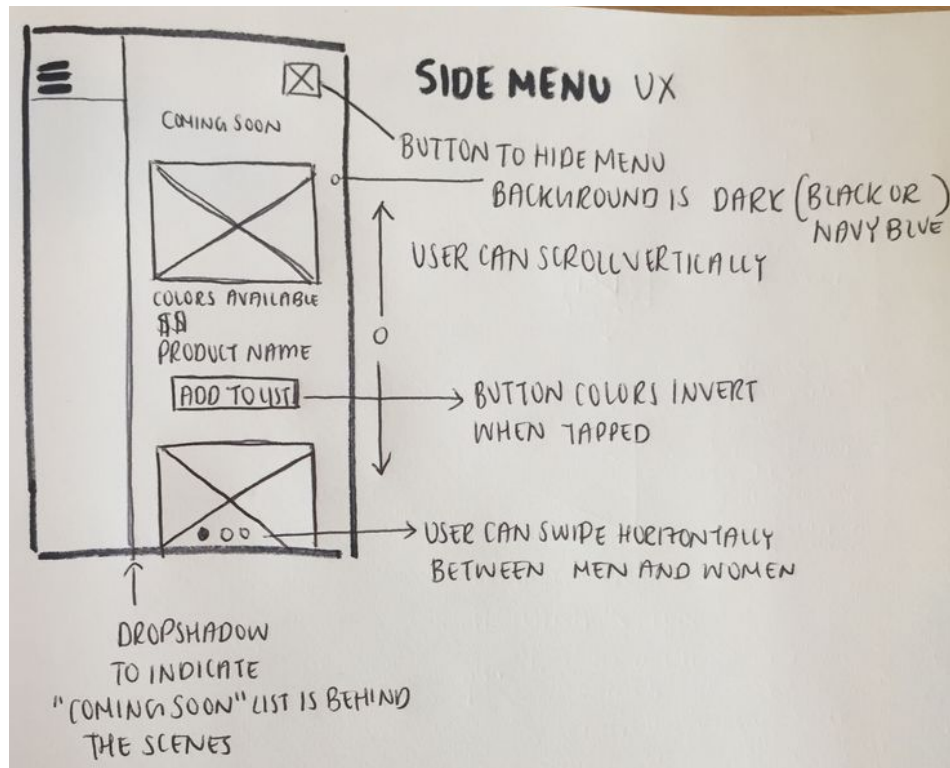 SIDE MENU UX
COMING SOON
BUTTON TO HIDE MENU
BACKGROUND IS DARK (BLACK OR
NAVY BLUE)
USER CAN SCROLL VERTICALLY
COLORS AVAILABLE
$$
PRODUCT NAME
ADD TO LIST
BUTTON COLORS INVERT
WHEN TAPPED
USER CAN SWIPE HORIZONTALLY
BETWEEN MEN AND WOMEN
DROPSHADOW
TO INDICATE
"COMING SOON" LIST IS BEHIND
THE SCENES